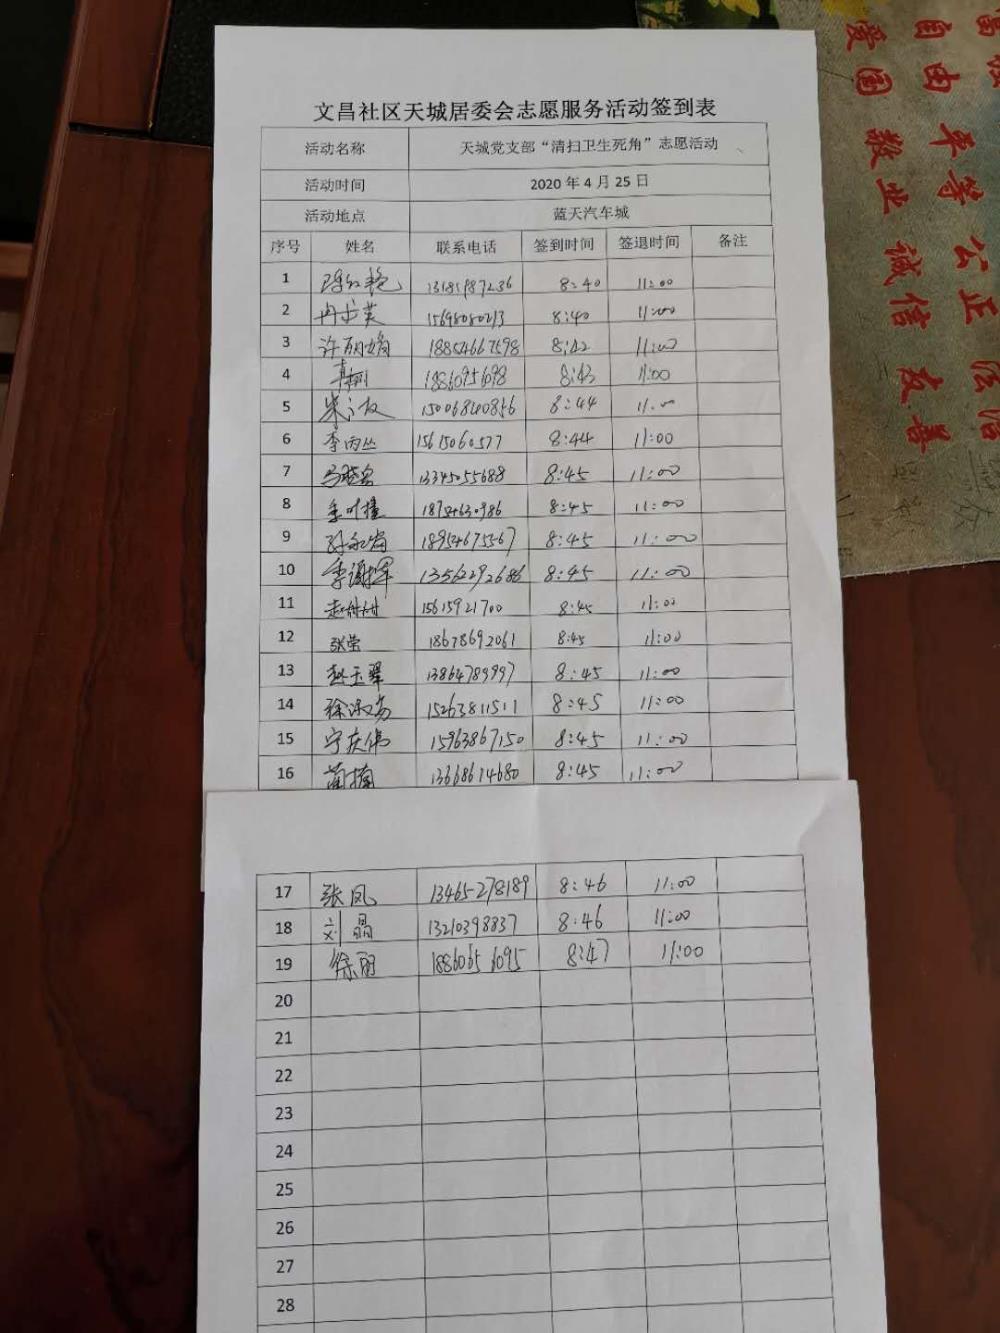 富强
自由 平等 公正 法治
爱国 敬业 诚信 友善
文昌社区天城居委会志愿服务活动签到表
活动名称 天城党支部“清扫卫生死角”志愿活动
活动时间 2020 年 4 月 25 日
活动地点 蓝天汽车城
序号 姓名 联系电话 签到时间 签退时间 备注
1 8:40 11:00
2 15698080213 8:40 11:00
3 许丽娟 18854667598 8:42 11:00
4 8:43 11:00
5 15006840856 8:44 11:00
6 李丙丛 15615060577 8:44 11:00
7 13345055688 8:45 11:00
8 18754630986 8:45 11:00
9 18954675567 8:45 11:00
10 13562292686 8:45 11:00
11 赵甜甜 15615921700 8:45 11:00
12 张荣 18678692061 8:45 11:00
13 赵玉翠 13864789997 8:45 11:00
14 徐淑芳 15263811511 8:45 11:00
15 宁庆伟 15963867150 8:45 11:00
16 13668614680 8:45 11:00
17 张凤 13465278189 8:46 11:00
18 刘晶 13210398837 8:46 11:00
19 徐丽 18860656095 8:47 11:00
20
21
22
23
24
25
26
27
28